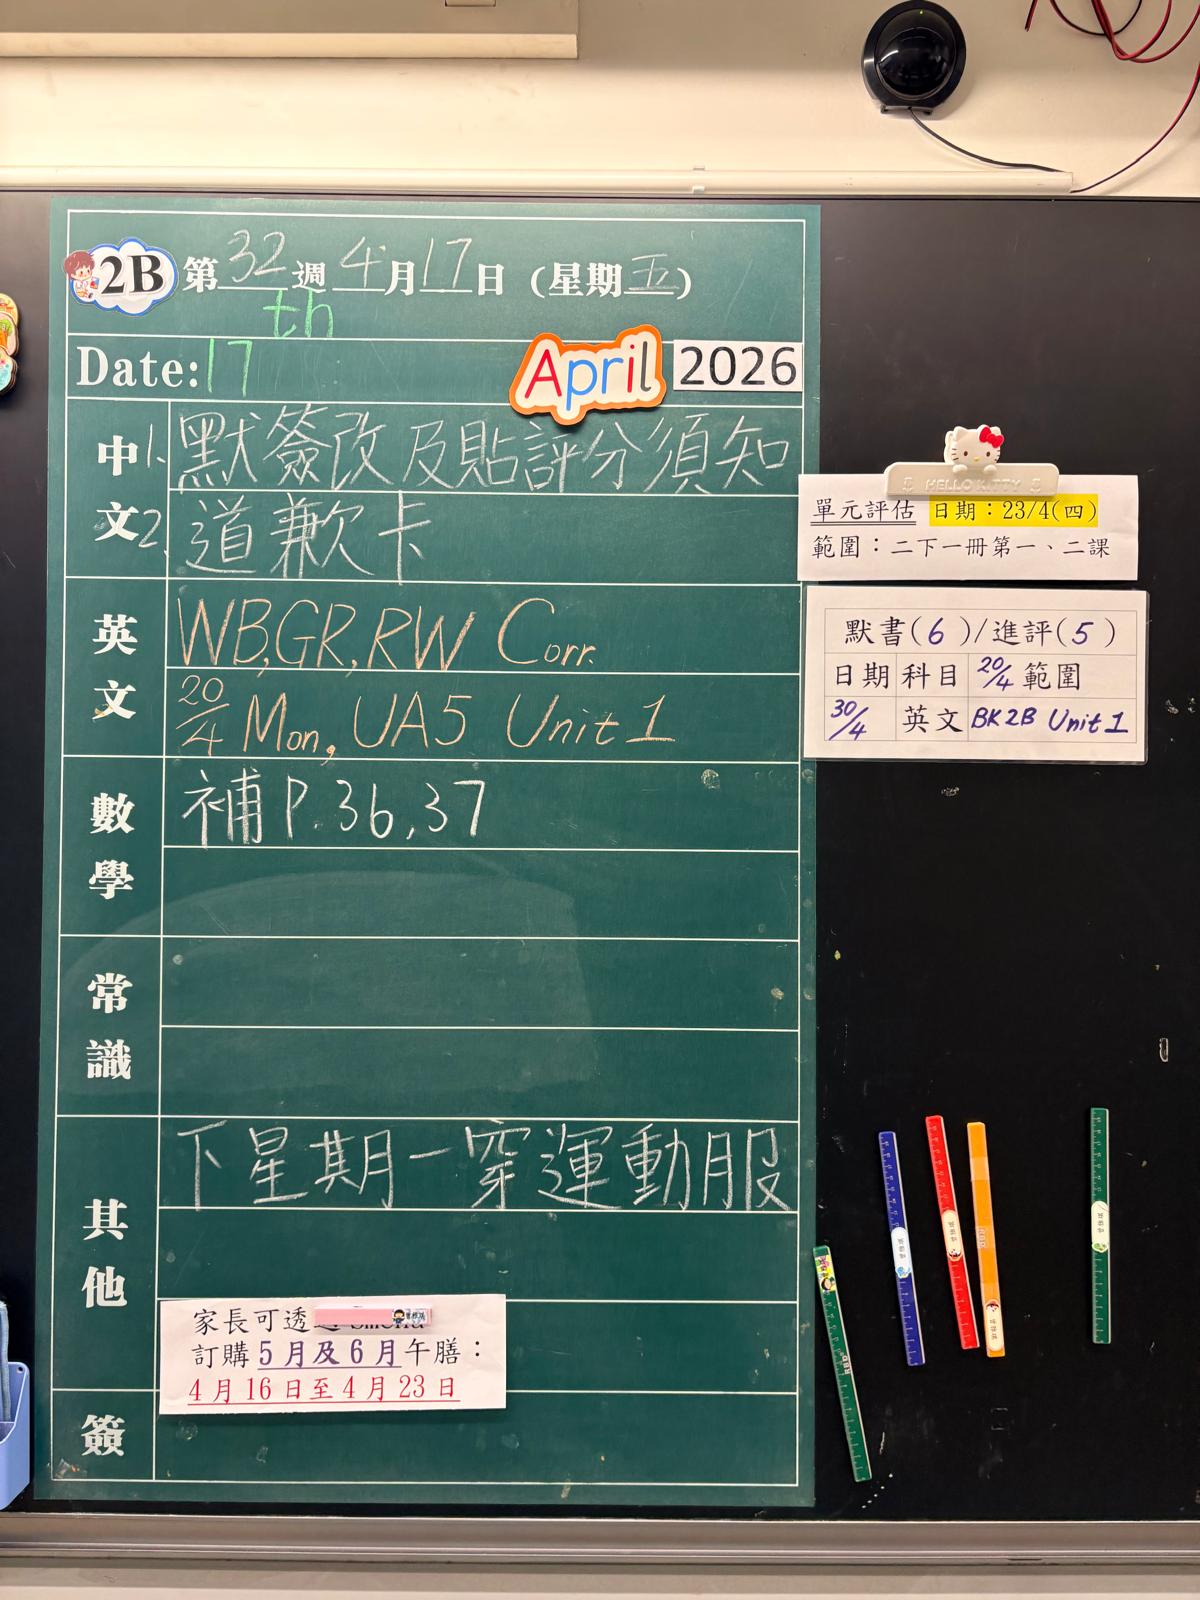 2B 第 32 週 4 月 17 日 (星期 五)
th
Date: 17 April 2026
中文
1. 默簽改及貼評分須知
2. 道歉卡
英文
WB, GR, RW Corr.
20/4 Mon, UA5 Unit 1
數學
補 P. 36, 37
常識
其他
下星期一穿運動服
家長可透
訂購 5月及6月午膳：
4月16日至4月23日
簽
HELLO KITTY
單元評估 日期：23/4(四)
範圍：二下一冊第一、二課
默書(6)/進評(5)
日期 科目 20/4 範圍
30/4 英文 BK2B Unit 1